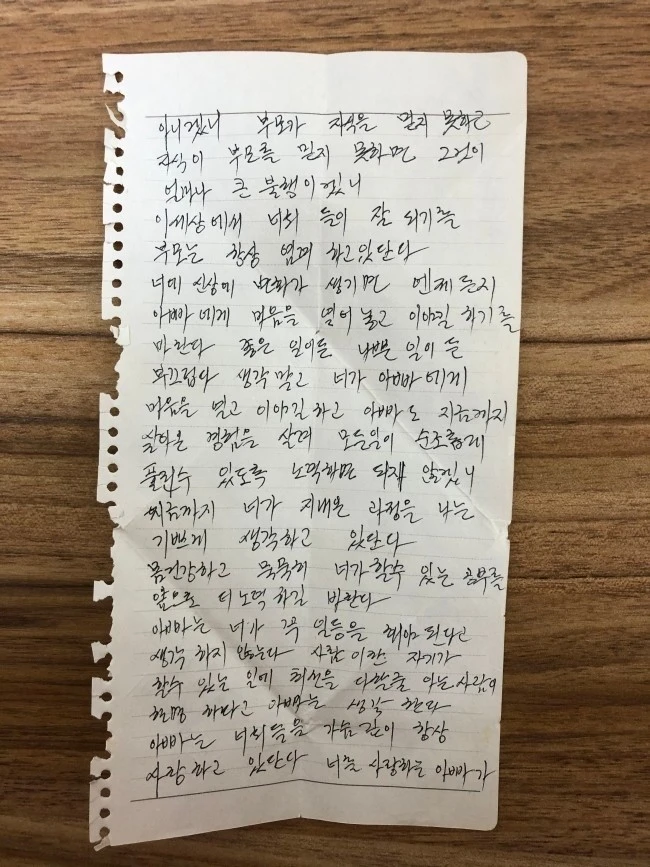 아니겠니 부모가 자식을 믿지 못하고
자식이 부모를 믿지 못하면 그것이
얼마나 큰 불행이겠니
이세상에서 너희 들이 잘 되기를
부모는 항상 염려 하고있단다
너에 신상에 변화가 생기면 언제든지
아빠 에게 마음을 열어 놓고 이야길 하기를
바란다 좋은 일이든 나쁜 일이 든
부끄럽다 생각말고 너가 아빠에게
마음을 열고 이야길 하고 아빠도 지금까지
살아온 경험을 살려 모든일이 순조롭게
풀릴수 있도록 노력하면 되지 않겠니
지금까지 너가 지내온 과정을 나는
기쁘게 생각하고 있단다
몸건강하고 묵묵히 너가할수 있는 공부를
앞으로 더노력 하길 바란다
아빠는 너가 꼭 일등을 해야 된다고
생각 하지 않는다 사람 이란 자기가
할수 있는 일에 최선을 다할줄 아는사람이
현명 하다고 아빠는 생각 한다
아빠는 너희들을 가슴깊이 항상
사랑 하고 있단다 너를 사랑하는 아빠가